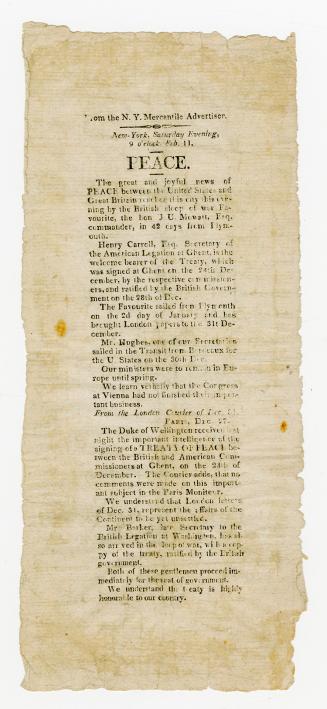 om the N. Y. Mercantile Advertiser.
New-York, Saturday Evening,
9 o'clock Feb. 11.
PEACE.
The great and joyful news of
PEACE between the United States and
Great Britain reached this city this eve-
ning by the British sloop of war Fa-
vourite, the hon J U. Mowatt, Esq.
commander, in 42 days from Plym-
outh.
Henry Carroll, Esq. Secretary of
the American Legation at Ghent, is the
welcome bearer of the Treaty, which
was signed at Ghent on the 24th De-
cember, by the respective commission-
ers, and ratified by the British Govern-
ment on the 28th of Dec.
The Favourite sailed from Plymouth
on the 2d day of January and has
brought London papers to the 31st De-
cember.
Mr. Hughes, one of our Secretaries
sailed in the Transit from Bordeaux for
the U. States on the 30th Dec.
Our ministers were to remain in Eu-
rope until spring.
We learn verbally that the Congress
at Vienna had not finished their impor-
tant business.
From the London Courier of Dec.
PARIS, DEC. 27.
The Duke of Wellington received last
night the important intelligence of the
signing of a TREATY OF PEACE be-
tween the British and American Com-
missioners at Ghent, on the 24th of
December. The Courier adds, that no
comments were made on this import-
ant subject in the Paris Moniteur.
We understand that London letters
of Dec. 31, represent the affairs of the
Continent to be yet unsettled.
Mr. Baker, late Secretary to the
British Legation at Washington, has al-
so arrived in the sloop of war, with a cop-
py of the treaty, ratified by the British
government.
Both of these gentlemen proceed im-
mediately for the seat of government.
We understand the treaty is highly
honourable to our country.